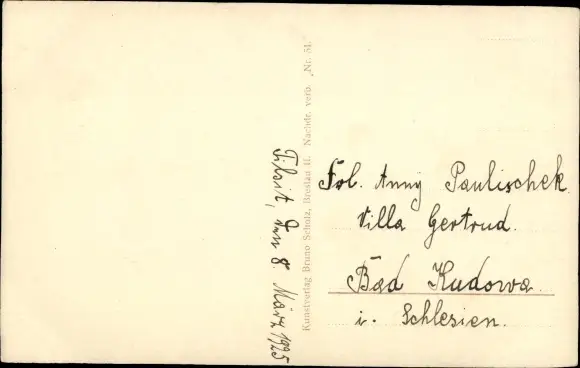 Tilsit, den 8. März 1925
Kunstverlag Bruno Scholz, Breslau II. Nachdr. verb. „Nr. 51.“
Frl. Anny Paulischek
Villa Gertrud.
Bad Kudowa
i. Schlesien.